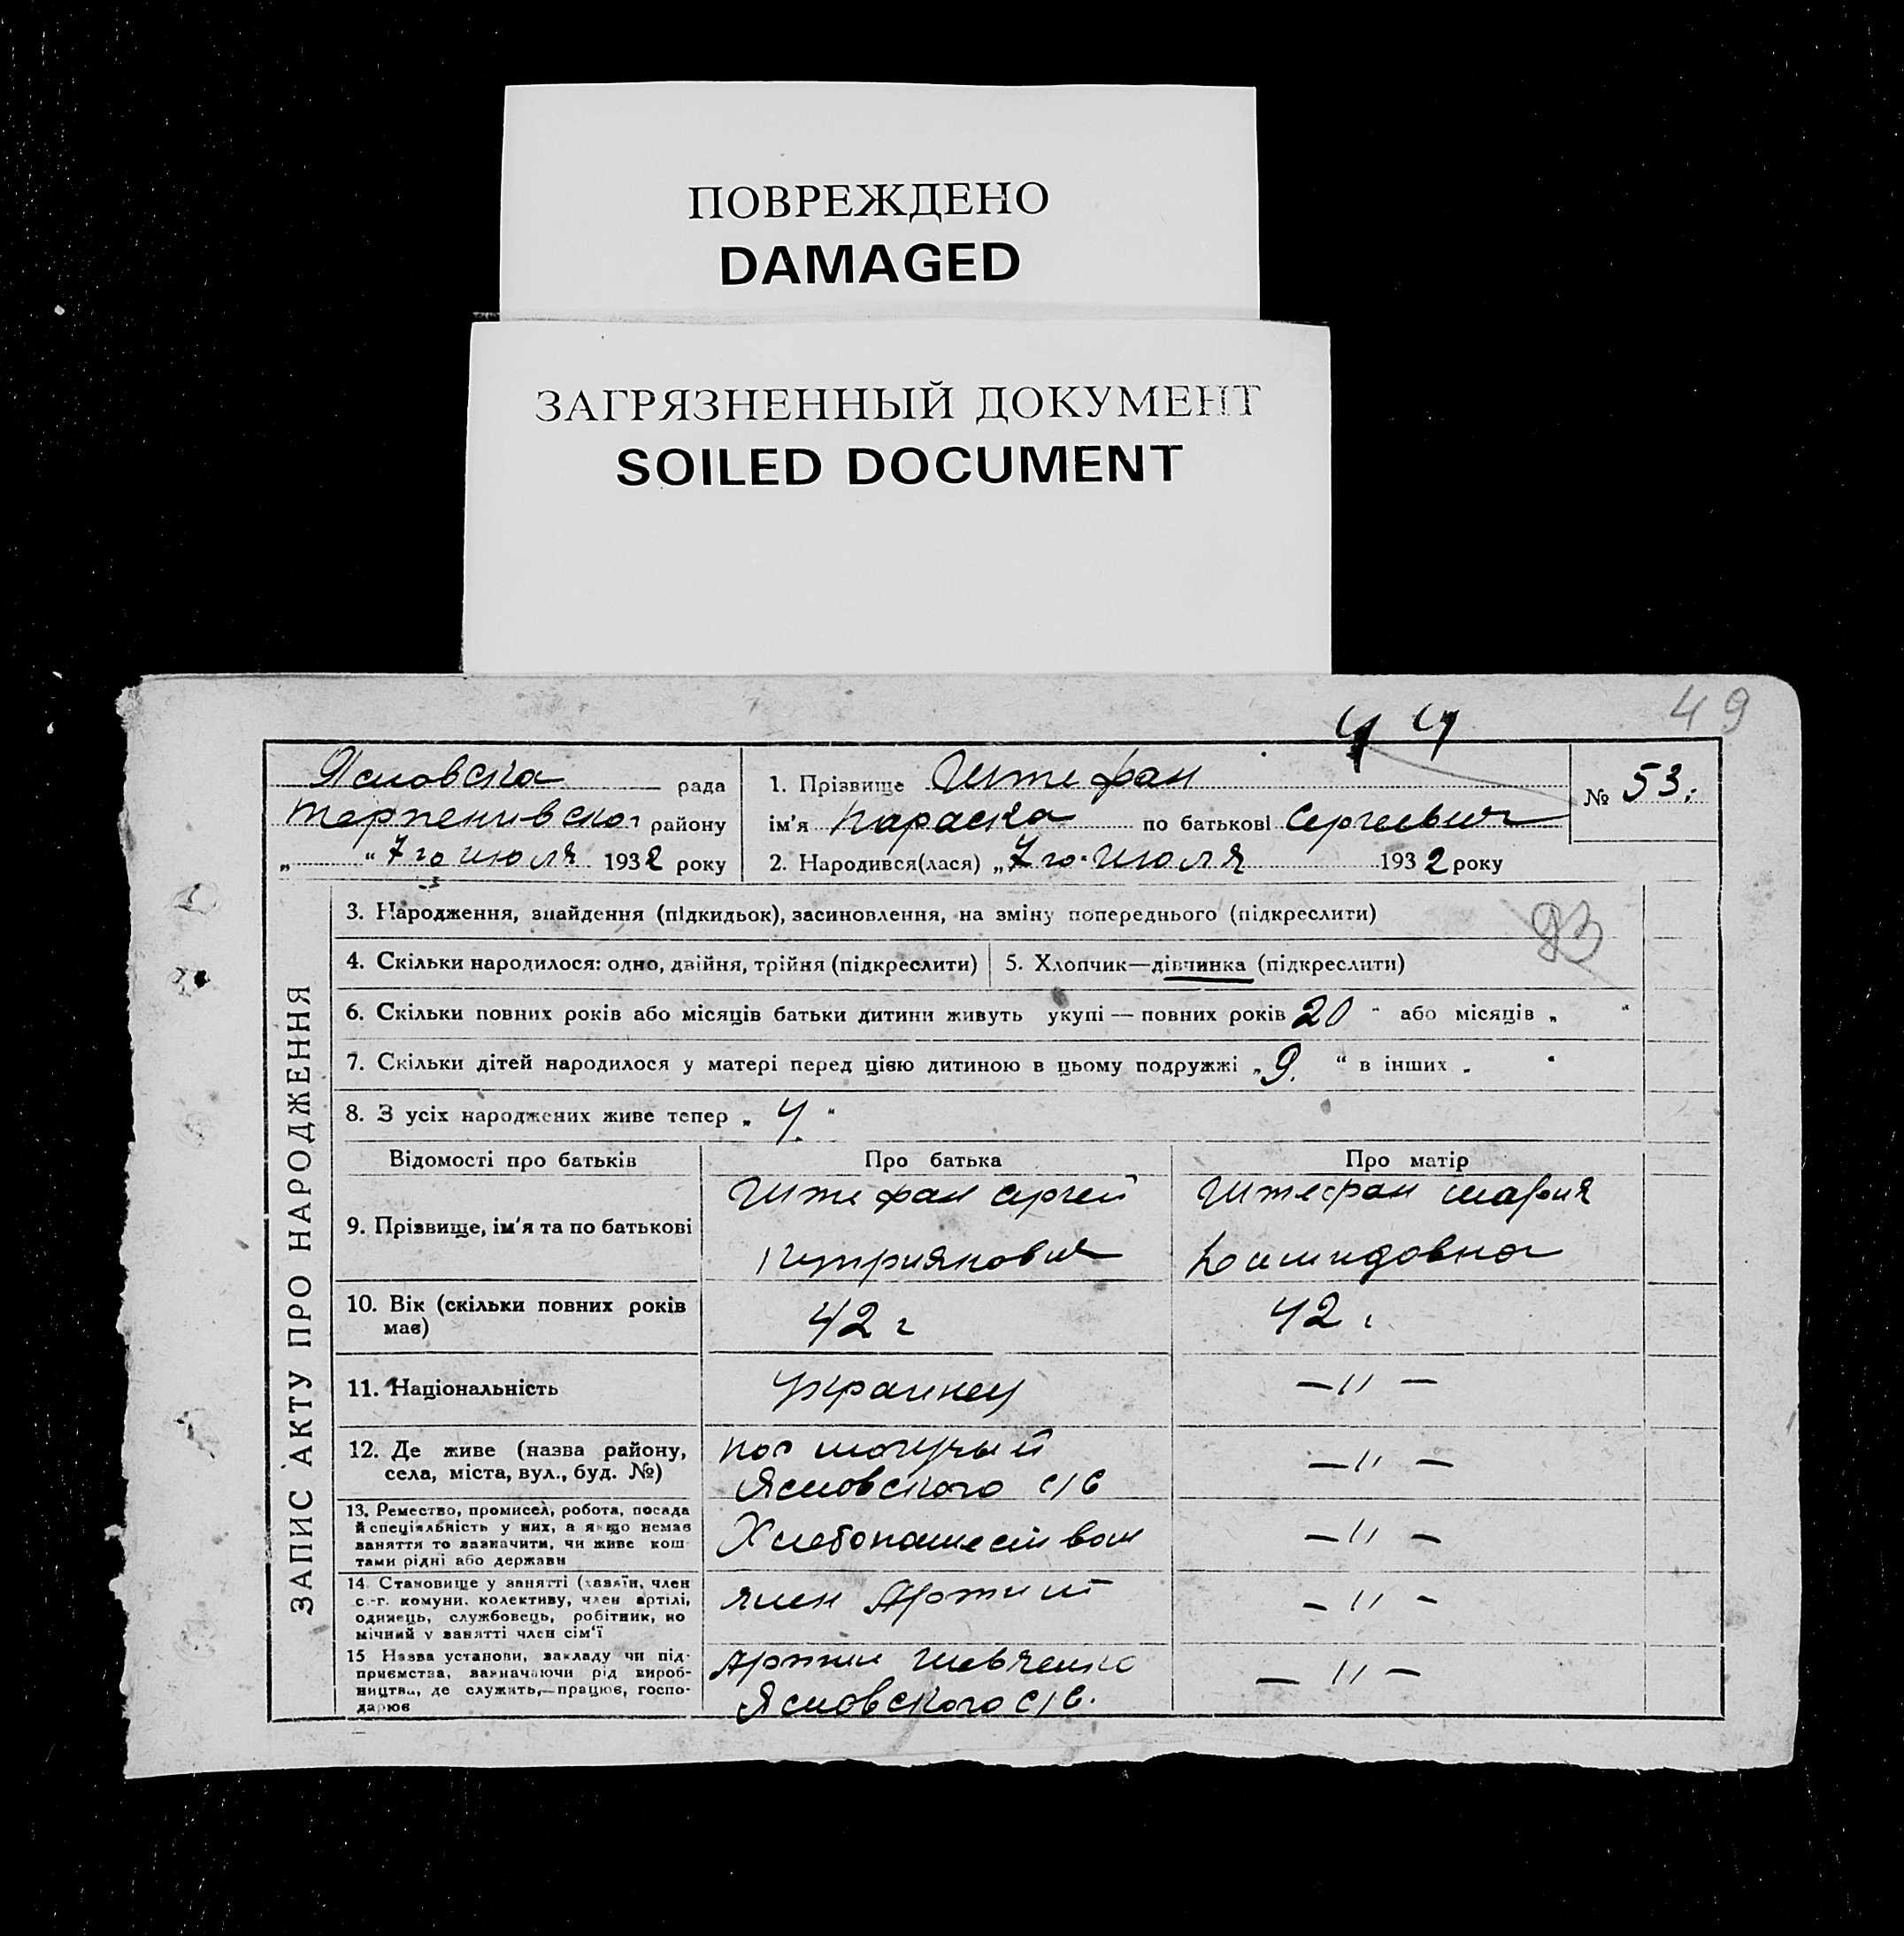 ПОВРЕЖДЕНО
DAMAGED
ЗАГРЯЗНЕННЫЙ ДОКУМЕНТ
SOILED DOCUMENT
49
рада
району
„ “ 7 го июля 1932 року
1. Прізвище Штефан
ім'я Параска по батькові Сергеевич
2. Народився(лася) „ 7 го июля 1932 року
№ 53.
ЗАПИС АКТУ ПРО НАРОДЖЕННЯ
3. Народження, знайдення (підкидьок), засиновлення, на зміну попереднього (підкреслити)
93
4. Скільки народилося: одно, двійня, трійня (підкреслити)
5. Хлопчик—дівчинка (підкреслити)
6. Скільки повних років або місяців батьки дитини живуть укупі — повних років 20 " або місяців „ “
7. Скільки дітей народилося у матері перед цією дитиною в цьому подружжі „ 9. “ в інших
8. З усіх народжених живе тепер „ 4. "
Відомості про батьків
Про батька
Про матір
9. Прізвище, ім'я та по батькові
Штефан Сергей
Куприянович
Штефан Мария
10. Вік (скільки повних років
має)
42 г
42 г
11. Національність
Украинец
— " —
12. Де живе (назва району,
села, міста, вул., буд. №)
пос Могучый
Ясиовского с/с
— " —
13. Ремество, промисел, робота, посада
й спеціяльність у них, а якщо немає
заняття то зазначити, чи живе кош-
тами рідні або держави
Хлебопашеством
— " —
14. Становище у занятті (хазяїн, член
с.-г. комуни, колективу, член артілі,
одинець, службовець, робітник, по
мічний у занятті член сім'ї
член Артили
— " —
15 Назва установи, закладу чи під-
приємства, зазначаючи рід вироб-
ництва, де служить,—працює, госпо-
дарює
Артили Шевченко
Ясиовского с/с.
— " —